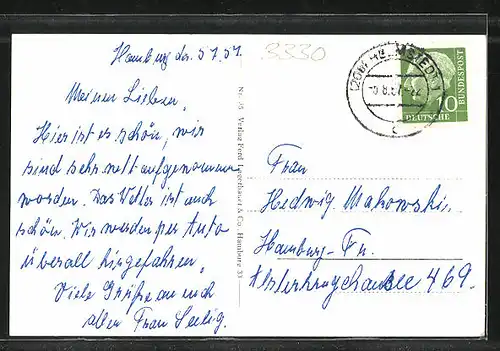 Hamburg den 5.7.57.
3330
Meinen Lieben,
Hier ist es schön, wir
sind sehr nett aufgenommen
worden. Das Wetter ist auch
schön. Wir werden per Auto
überall hingefahren,
Viele Grüße an euch
allen Frau Seelig.
Verlag Ferd. Lagerbauer & Co., Hamburg 33
(20b) HELMSTEDT
c
10
DEUTSCHE
BUNDESPOST
Frau
Hedwig Makowski,
Hamburg-Fu.
Alsterkrugchaussee 469.